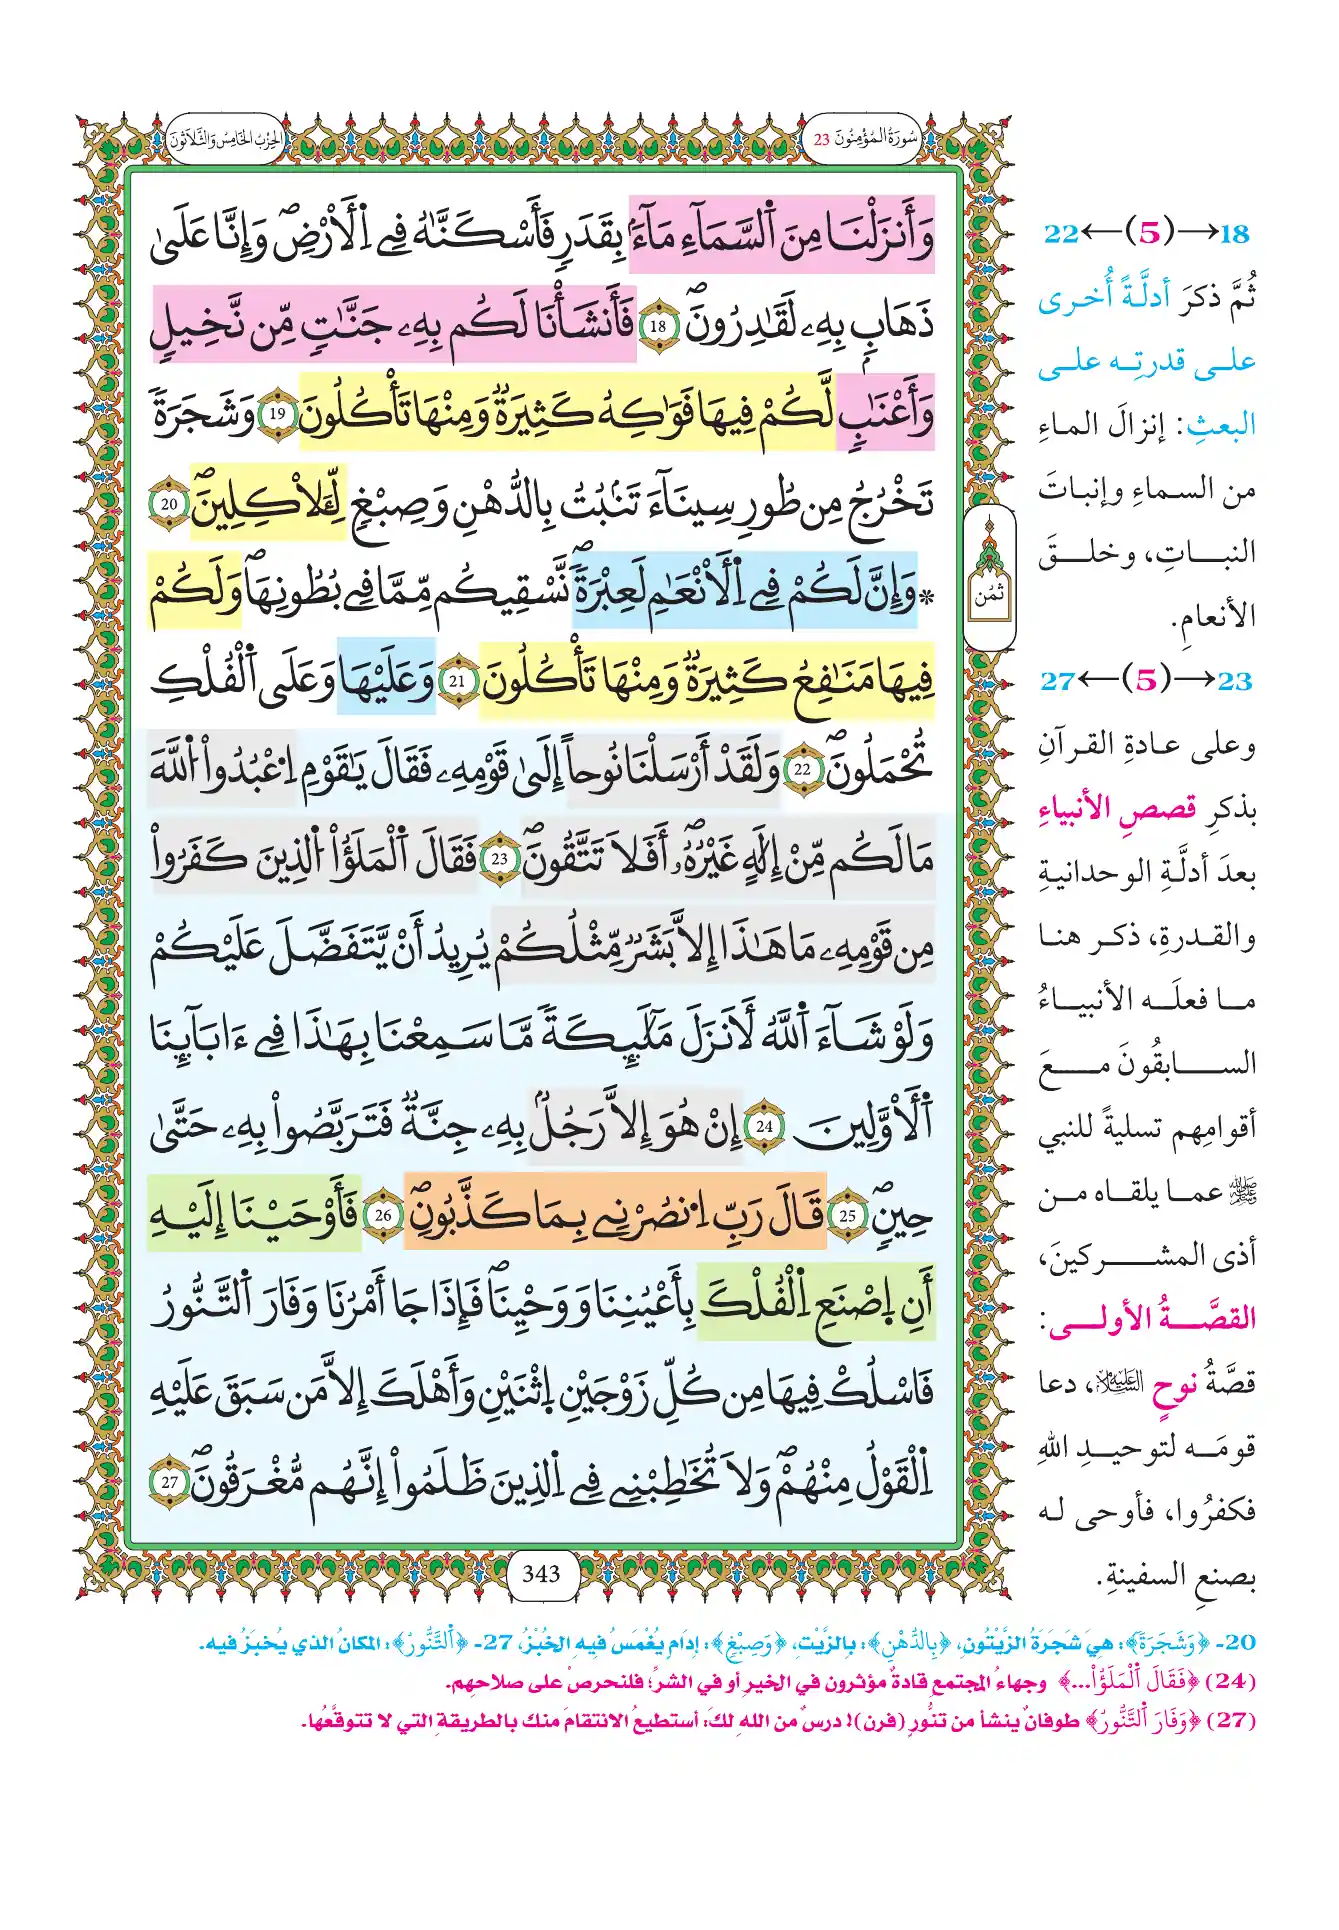 سُورَةُ المُؤْمِنُونَ 23
الحِزْبُ الخَامِسُ وَالثَّلَاثُونَ
وَأَنزَلْنَا مِنَ اَ۬لسَّمَآءِ مَآءَۢ بِقَدَرٖ فَأَسْكَنَّٰهُ فِے اِ۬لَارْضِۖ وَإِنَّا عَلَىٰ
ذَهَابِۢ بِهِۦ لَقَٰدِرُونَۖ 18 فَأَنشَأْنَا لَكُم بِهِۦ جَنَّٰتٖ مِّن نَّخِيلٖ
وَأَعْنَٰبٖ لَّكُمْ فِيهَا فَوَٰكِهُ كَثِيرَةٞ وَمِنْهَا تَأْكُلُونَ 19 وَشَجَرَةٗ
تَخْرُجُ مِن طُورِ سِينَآءَ تَنۢبُتُ بِالدُّهْنِ وَصِبْغٖ لِّلَاكِلِينَۖ 20
* وَإِنَّ لَكُمْ فِے اِ۬لَانْعَٰمِ لَعِبْرَةٗۖ نَّسْقِيكُم مِّمَّا فِے بُطُونِهَاۖ وَلَكُمْ
فِيهَا مَنَٰفِعُ كَثِيرَةٞ وَمِنْهَا تَأْكُلُونَ 21 وَعَلَيْهَا وَعَلَى اَ۬لْفُلْكِ
تُحْمَلُونَۖ 22 وَلَقَدْ أَرْسَلْنَا نُوحاً إِلَىٰ قَوْمِهِۦ فَقَالَ يَٰقَوْمِ اِ۟عْبُدُواْ اُ۬للَّهَ
مَا لَكُم مِّنْ إِلَٰهٍ غَيْرُهُۥۖ أَفَلَا تَتَّقُونَۖ 23 فَقَالَ اَ۬لْمَلَؤُاْ اُ۬لذِينَ كَفَرُواْ
مِن قَوْمِهِۦ مَا هَٰذَا إِلَّا بَشَرٞ مِّثْلُكُمْ يُرِيدُ أَنْ يَّتَفَضَّلَ عَلَيْكُمْ
وَلَوْ شَآءَ اَ۬للَّهُ لَأَنزَلَ مَلَٰٓئِكَةٗ مَّا سَمِعْنَا بِهَٰذَا فِے ءَابَآئِنَا
اَ۬لَاوَّلِينَ 24 إِنْ هُوَ إِلَّا رَجُلُۢ بِهِۦ جِنَّةٞ فَتَرَبَّصُواْ بِهِۦ حَتَّىٰ
حِينٖۖ 25 قَالَ رَبِّ اِ۟نصُرْنِے بِمَا كَذَّبُونِۖ 26 فَأَوْحَيْنَا إِلَيْهِ
أَنِ اِ۪صْنَعِ اِ۬لْفُلْكَ بِأَعْيُنِنَا وَوَحْيِنَاۖ فَإِذَا جَا أَمْرُنَا وَفَارَ اَ۬لتَّنُّورُ
فَاسْلُكْ فِيهَا مِن كُلِّ زَوْجَيْنِ اِ۪ثْنَيْنِ وَأَهْلَكَ إِلَّا مَن سَبَقَ عَلَيْهِ
اِ۬لْقَوْلُ مِنْهُمْۖ وَلَا تُخَٰطِبْنِے فِے اِ۬لذِينَ ظَلَمُواْ إِنَّهُم مُّغْرَقُونَۖ 27
343
ثُمُن
18→(5)←22
ثُمَّ ذكرَ أدلَّةً أُخرى
على قدرتِه على
البعثِ: إنزالَ الماءِ
من السماءِ وإنباتَ
النباتِ، وخلقَ
الأنعامِ.
23→(5)←27
وعلى عادةِ القرآنِ
بذكرِ قصصِ الأنبياءِ
بعدَ أدلَّةِ الوحدانيةِ
والقدرةِ، ذكر هنا
ما فعلَه الأنبياءُ
السابقُونَ معَ
أقوامِهم تسليةً للنبي
ﷺ عما يلقاه من
أذى المشركينَ،
القصَّةُ الأولى:
قصَّةُ نوحٍ عليه السلام، دعا
قومَه لتوحيدِ اللهِ
فكفرُوا، فأوحى له
بصنعِ السفينةِ.
20- ﴿وَشَجَرَةٗ﴾: هِيَ شَجَرَةُ الزَّيْتُونِ، ﴿بِالدُّهْنِ﴾: بِالزَّيْتِ، ﴿وَصِبْغٖ﴾: إِدَامٍ يُغْمَسُ فِيهِ الخُبْزُ، 27- ﴿اَ۬لتَّنُّورُ﴾: المكانُ الذي يُخبَزُ فيه.
(24) ﴿فَقَالَ اَ۬لْمَلَؤُاْ...﴾ وجهاءُ المجتمعِ قادةٌ مؤثرون في الخيرِ أو في الشرِّ؛ فلنحرصْ على صلاحِهم.
(27) ﴿وَفَارَ اَ۬لتَّنُّورُ﴾ طوفانٌ ينشأ من تنُّورٍ (فرن)! درسٌ من اللهِ لكَ: أستطيعُ الانتقامَ منك بالطريقةِ التي لا تتوقَّعُها.